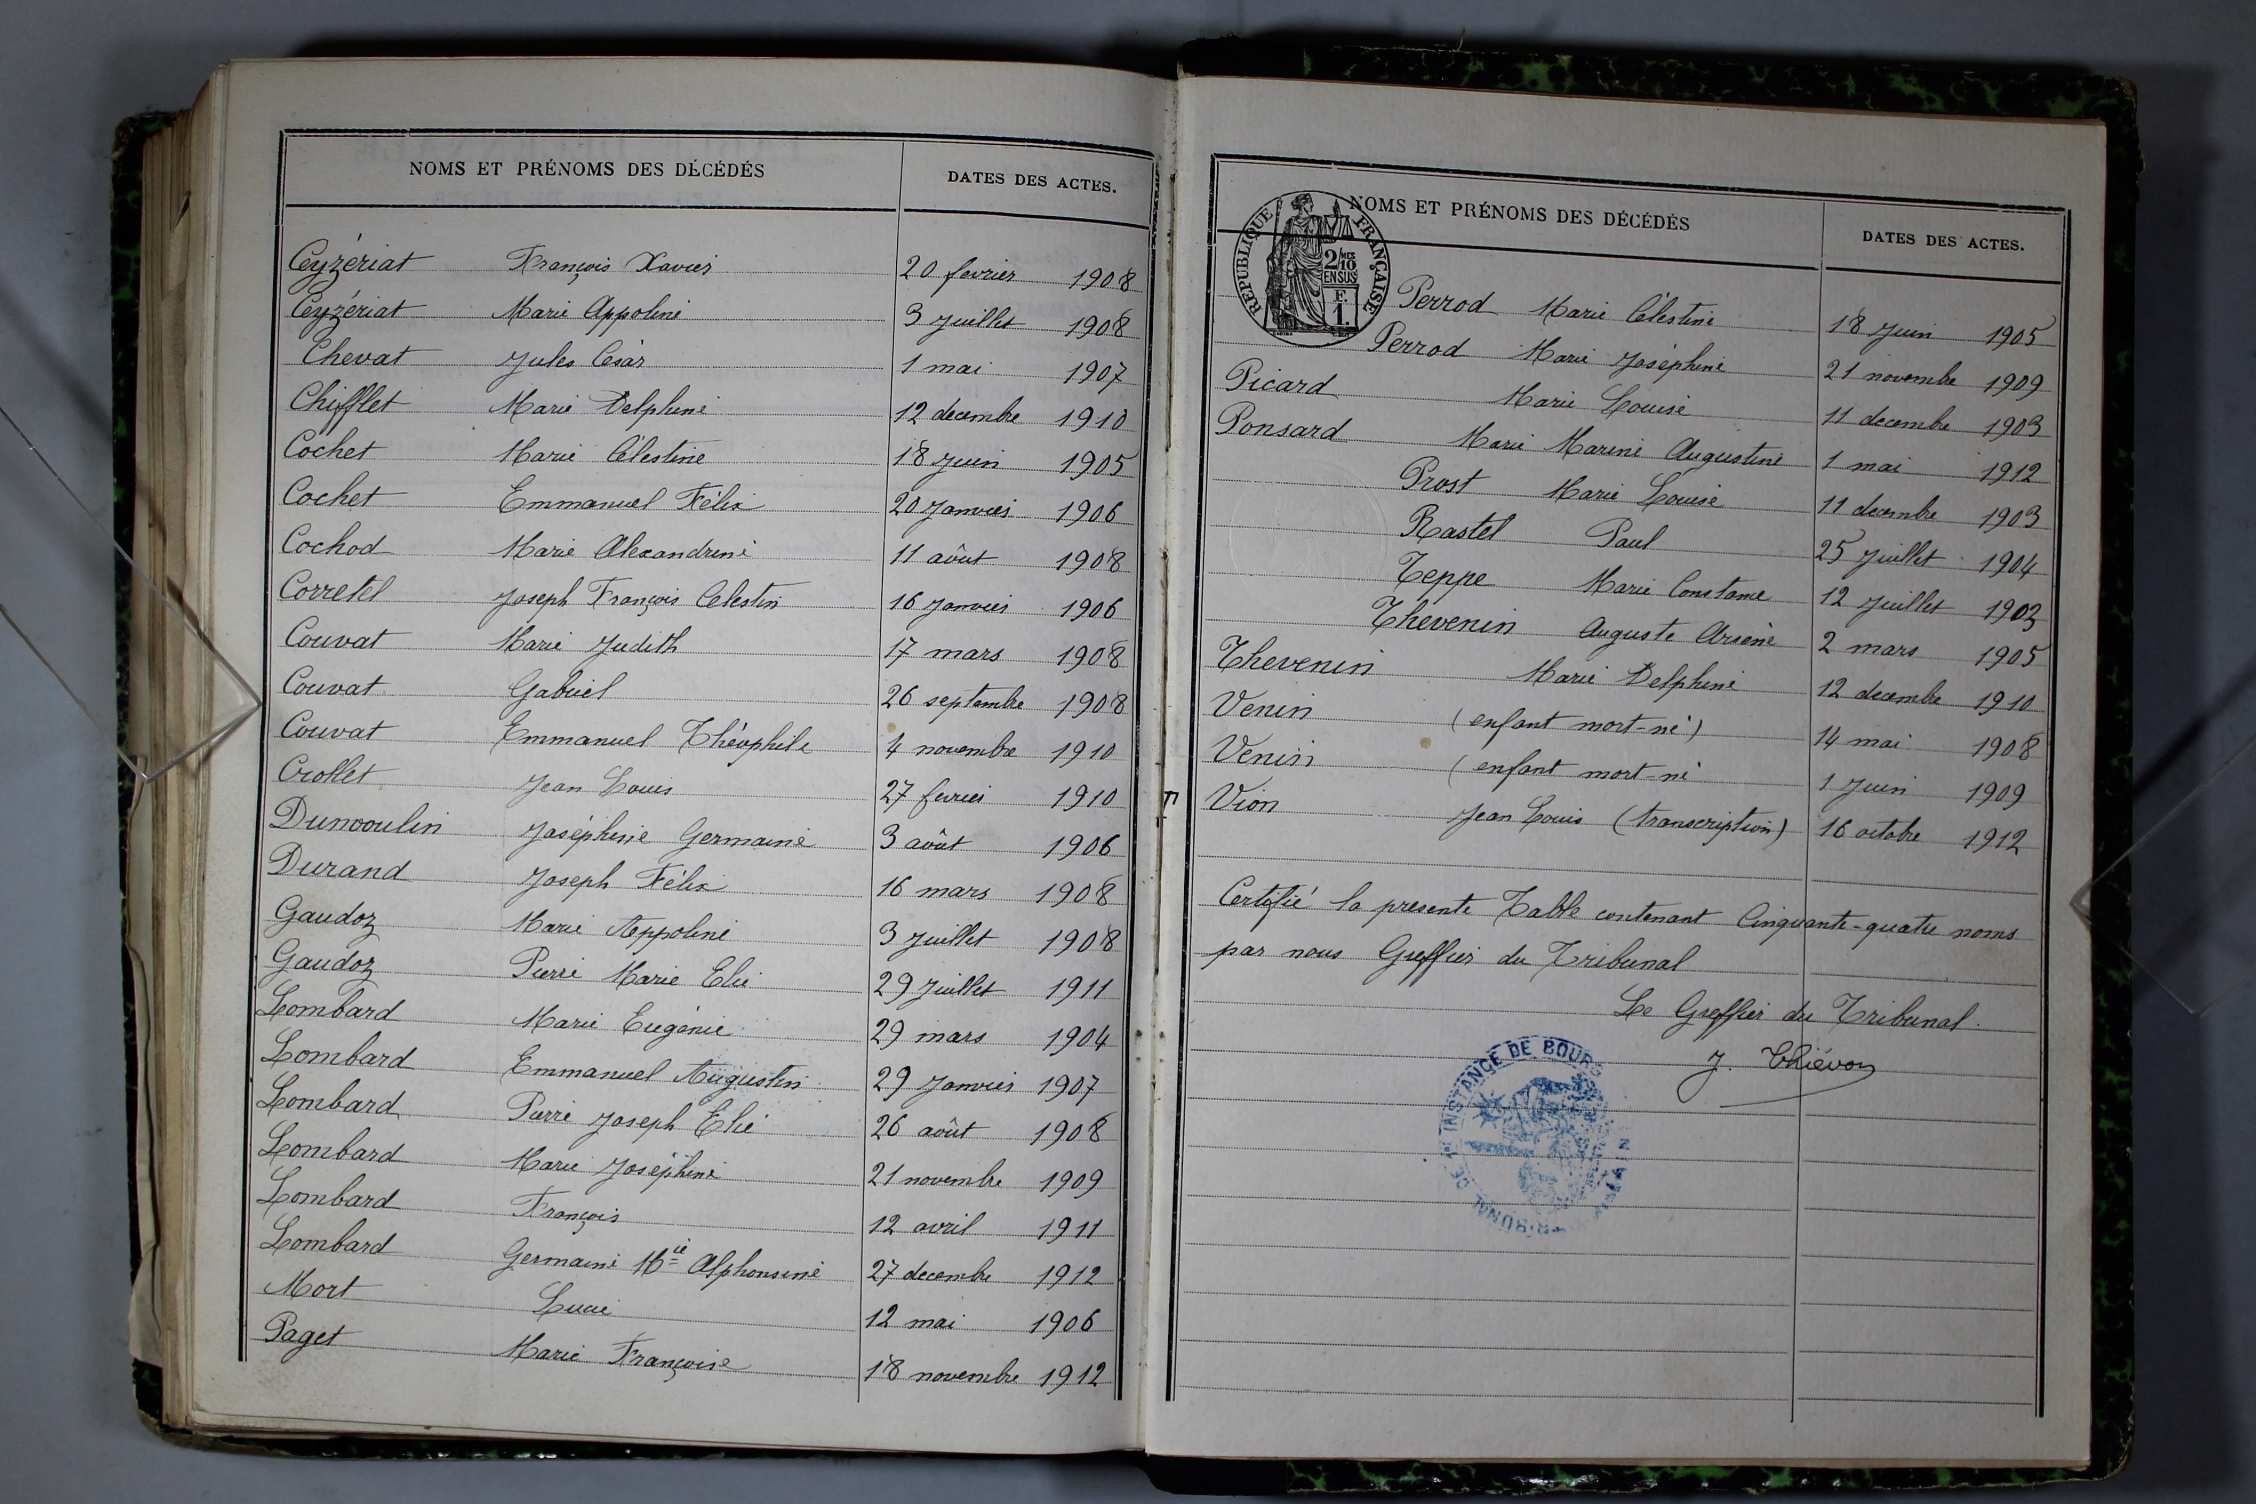 NOMS ET PRÉNOMS DES DÉCÉDÉS DATES DES ACTES.
Ceyzériat François Xavier 20 fevrier 1908
Ceyzériat Marie Appoline 3 Juillet 1908
Chevat Jules César 1 mai 1907
Chifflet Marie Delphine 12 decembre 1910
Cochet Marie Célestine 18 Juin 1905
Cochet Emmanuel Félix 20 Janvier 1906
Cochod Marie Alexandrine 11 août 1908
Corretel Joseph François Celestin 16 Janvier 1906
Couvat Marie Judith 17 mars 1908
Couvat Gabriel 26 septembre 1908
Couvat Emmanuel Théophile 4 novembre 1910
Crollet Jean Louis 27 fevrier 1910
Dumoulin Joséphine Germaine 3 août 1906
Durand Joseph Félix 16 mars 1908
Gaudoz Marie Appoline 3 Juillet 1908
Gaudoz Pierre Marie Elie 29 Juillet 1911
Lombard Marie Eugénie 29 mars 1904
Lombard Emmanuel Augustin 29 Janvier 1907
Lombard Pierre Joseph Elie 26 août 1908
Lombard Marie Joséphine 21 novembre 1909
Lombard François 12 avril 1911
Lombard Germaine Mie Alphonsine 27 decembre 1912
Mort Lucie 12 mai 1906
Paget Marie Françoise 18 novembre 1912
NOMS ET PRÉNOMS DES DÉCÉDÉS DATES DES ACTES.
RÉPUBLIQUE FRANÇAISE
2/10 MES
EN SUS
F.
1.
Perrod Marie Célestine 18 Juin 1905
Perrod Marie Joséphine 21 novembre 1909
Picard Marie Louise 11 decembre 1903
Ponsard Marie Marine Augustine 1 mai 1912
Prost Marie Louise 11 decembre 1903
Rastel Paul 25 Juillet 1904
Teppe Marie Constance 12 Juillet 1903
Thevenin Auguste Arsène 2 mars 1905
Thevenin Marie Delphine 12 decembre 1910
Venin (enfant mort-né) 14 mai 1908
Venin (enfant mort-né 1 Juin 1909
Vion Jean Louis (transcription) 16 octobre 1912
Certifié la presente Table contenant Cinquante-quatre noms
par nous Greffier du Tribunal
Le Greffier du Tribunal.
J. Thiévon
TRIBUNAL DE 1re INSTANCE DE BOURG